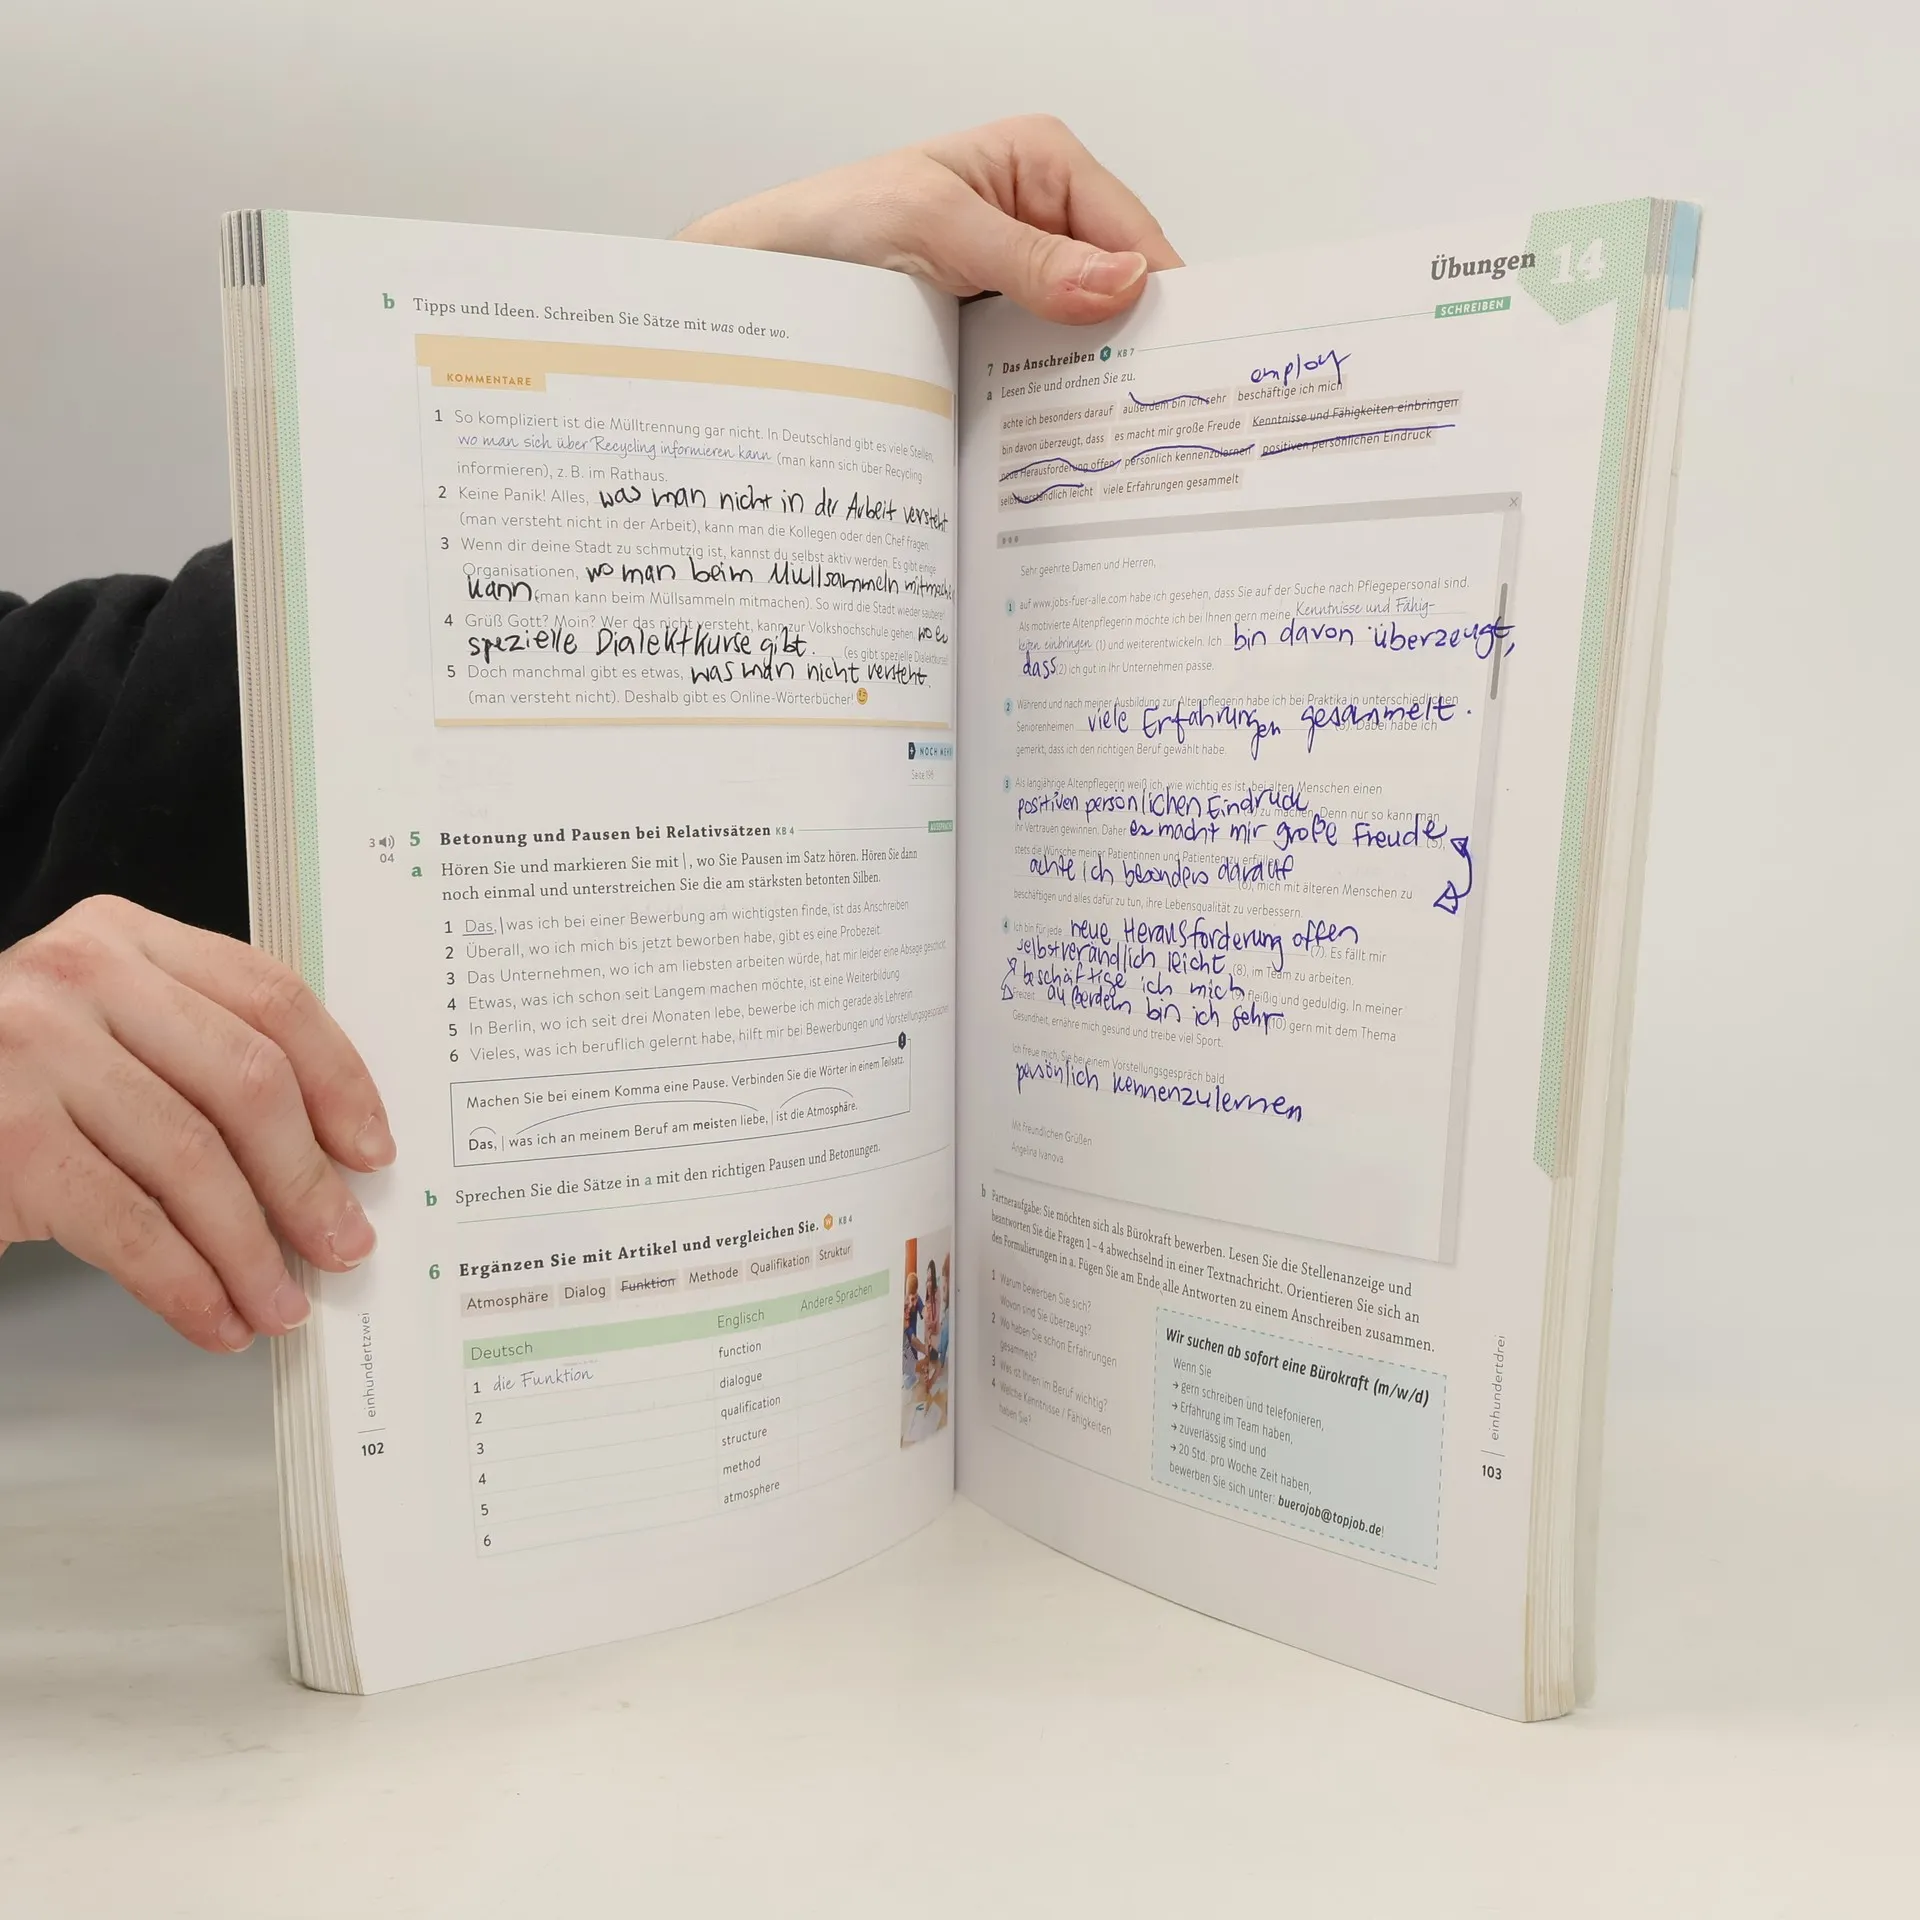 b Tipps und Ideen. Schreiben Sie Sätze mit was oder wo.
KOMMENTARE
1 So kompliziert ist die Mülltrennung gar nicht. In Deutschland gibt es viele Stellen,
wo man sich über Recycling informieren kann (man kann sich über Recycling
informieren), z.B. im Rathaus.
2 Keine Panik! Alles, was man nicht in der Arbeit versteht
(man versteht nicht in der Arbeit), kann man die Kollegen oder den Chef fragen.
3 Wenn dir deine Stadt zu schmutzig ist, kannst du selbst aktiv werden. Es gibt einige
Organisationen, wo man beim Müllsammeln mitmache
kann (man kann beim Müllsammeln mitmachen). So wird die Stadt wieder sauberer!
4 Grüß Gott? Moin? Wer das nicht versteht, kann zur Volkshochschule gehen, wo es
spezielle Dialektkurse gibt. (es gibt spezielle Dialektkurse)
5 Doch manchmal gibt es etwas, was man nicht versteht.
(man versteht nicht). Deshalb gibt es Online-Wörterbücher!
NOCH MEHR
3 04
5 Betonung und Pausen bei Relativsätzen KB 4
a Hören Sie und markieren Sie mit |, wo Sie Pausen im Satz hören. Hören Sie dann
noch einmal und unterstreichen Sie die am stärksten betonten Silben.
1 Das, | was ich bei einer Bewerbung am wichtigsten finde, ist das Anschreiben
2 Überall, wo ich mich bis jetzt beworben habe, gibt es eine Probezeit.
3 Das Unternehmen, wo ich am liebsten arbeiten würde, hat mir leider eine Absage geschickt
4 Etwas, was ich schon seit Langem machen möchte, ist eine Weiterbildung
5 In Berlin, wo ich seit drei Monaten lebe, bewerbe ich mich gerade als Lehrerin
6 Vieles, was ich beruflich gelernt habe, hilft mir bei Bewerbungen und Vorstellungsgesprächen
Machen Sie bei einem Komma eine Pause. Verbinden Sie die Wörter in einem Teilsatz.
Das, | was ich an meinem Beruf am meisten liebe, | ist die Atmosphäre.
b Sprechen Sie die Sätze in a mit den richtigen Pausen und Betonungen.
6 Ergänzen Sie mit Artikel und vergleichen Sie. KB 4
Atmosphäre Dialog Funktion Methode Qualifikation Struktur
Deutsch Englisch Andere Sprachen
1 die Funktion function
2 dialogue
3 qualification
4 structure
5 method
6 atmosphere
einhundertzwei
102
Übungen 14
SCHREIBEN
7 Das Anschreiben KB 7
employ
a Lesen Sie und ordnen Sie zu.
achte ich besonders darauf außerdem bin ich sehr beschäftige ich mich
bin davon überzeugt, dass es macht mir große Freude Kenntnisse und Fähigkeiten einbringen
neue Herausforderung offen persönlich kennenzulernen positiven persönlichen Eindruck
selbstverständlich leicht viele Erfahrungen gesammelt
Sehr geehrte Damen und Herren,
1 auf www.jobs-fuer-alle.com habe ich gesehen, dass Sie auf der Suche nach Pflegepersonal sind.
Als motivierte Altenpflegerin möchte ich bei Ihnen gern meine Kenntnisse und Fähig-
keiten einbringen (1) und weiterentwickeln. Ich bin davon überzeugt,
dass (2) ich gut in Ihr Unternehmen passe.
2 Während und nach meiner Ausbildung zur Altenpflegerin habe ich bei Praktika in unterschiedlichen
Seniorenheimen viele Erfahrungen gesammelt. (3). Dabei habe ich
gemerkt, dass ich den richtigen Beruf gewählt habe.
3 Als langjährige Altenpflegerin weiß ich, wie wichtig es ist, bei alten Menschen einen
positiven persönlichen Eindruck zu machen. Denn nur so kann man
ihr Vertrauen gewinnen. Daher es macht mir große Freude (5),
stets die Wünsche meiner Patientinnen und Patienten zu erfüllen
achte ich besonders darauf (6), mich mit älteren Menschen zu
beschäftigen und alles dafür zu tun, ihre Lebensqualität zu verbessern.
4 Ich bin für jede neue Herausforderung offen (7). Es fällt mir
selbstverändlich leicht (8), im Team zu arbeiten.
beschäftige ich mich (9) fleißig und geduldig. In meiner
Freizeit außerdem bin ich sehr (10) gern mit dem Thema
Gesundheit, ernähre mich gesund und treibe viel Sport.
Ich freue mich, Sie bei einem Vorstellungsgespräch bald
persönlich kennenzulernen
Mit freundlichen Grüßen
Angelina Ivanova
b Partneraufgabe: Sie möchten sich als Bürokraft bewerben. Lesen Sie die Stellenanzeige und
beantworten Sie die Fragen 1–4 abwechselnd in einer Textnachricht. Orientieren Sie sich an
den Formulierungen in a. Fügen Sie am Ende alle Antworten zu einem Anschreiben zusammen.
1 Warum bewerben Sie sich?
Wovon sind Sie überzeugt?
2 Wo haben Sie schon Erfahrungen
gesammelt?
3 Was ist Ihnen im Beruf wichtig?
4 Welche Kenntnisse / Fähigkeiten
haben Sie?
Wir suchen ab sofort eine Bürokraft (m/w/d)
Wenn Sie
→ gern schreiben und telefonieren,
→ Erfahrung im Team haben,
→ zuverlässig sind und
→ 20 Std. pro Woche Zeit haben,
bewerben Sie sich unter: buerojob@topjob.de!
einhundertdrei
103